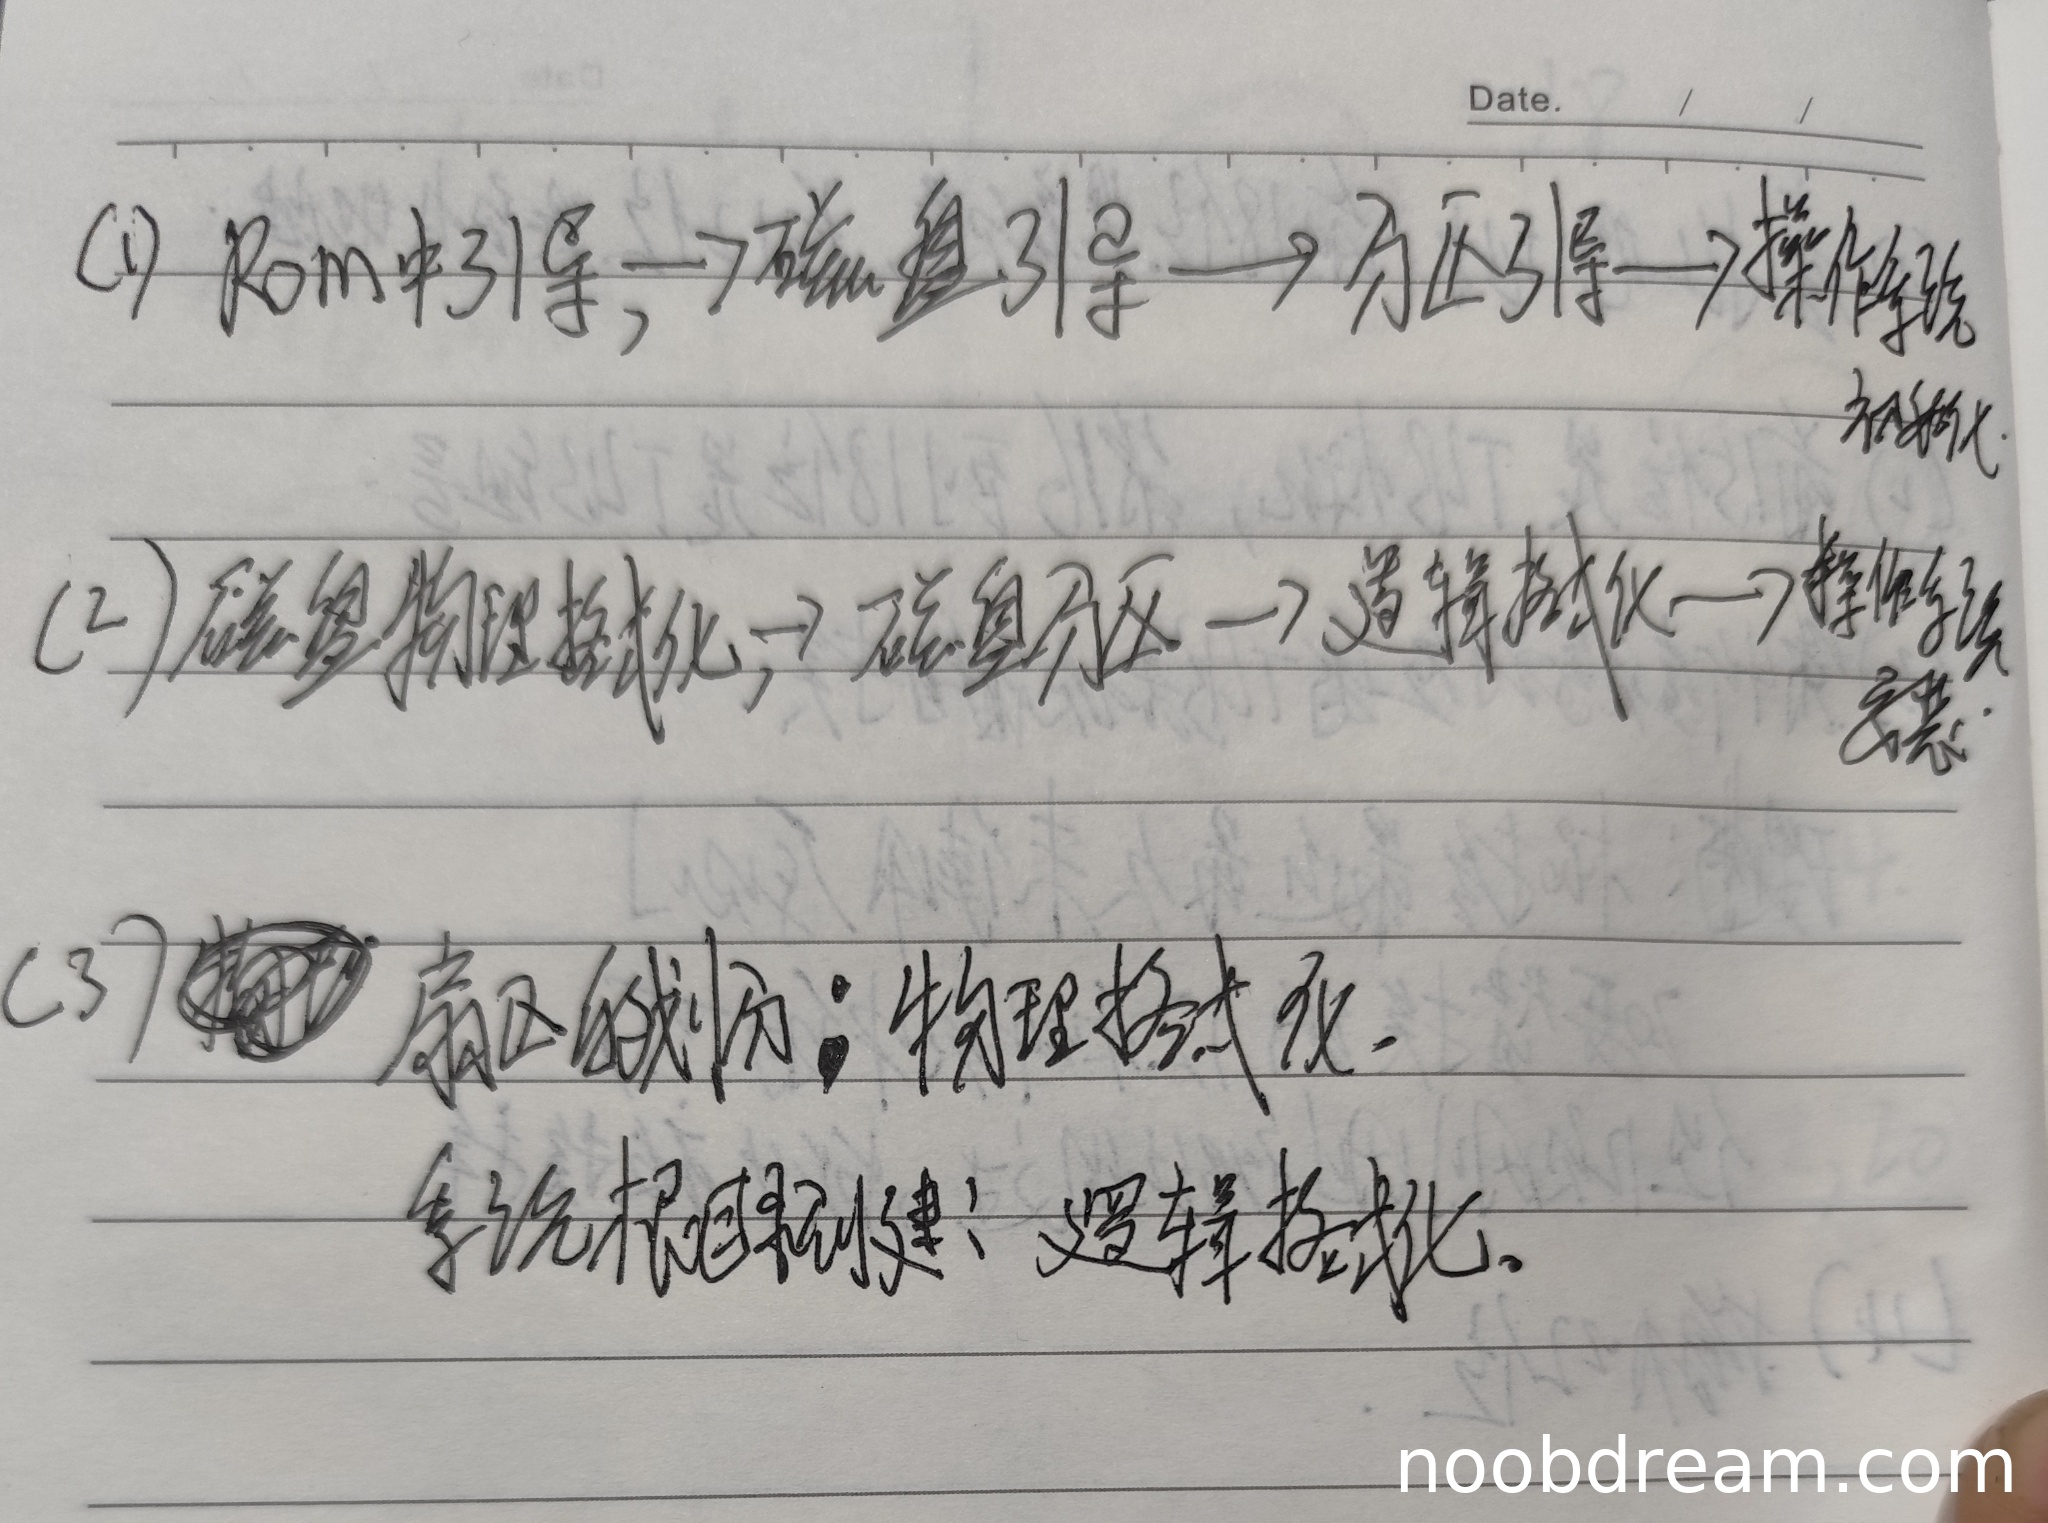 Date. / /
(1) Rom中引导,→磁盘引导→分区引导→操作系统
初始化.
(2) 磁盘物理格式化,→磁盘分区→逻辑格式化→操作系统
安装.
(3) 扇区的划分:物理格式化.
系统根目录创建:逻辑格式化。
noobdream.com